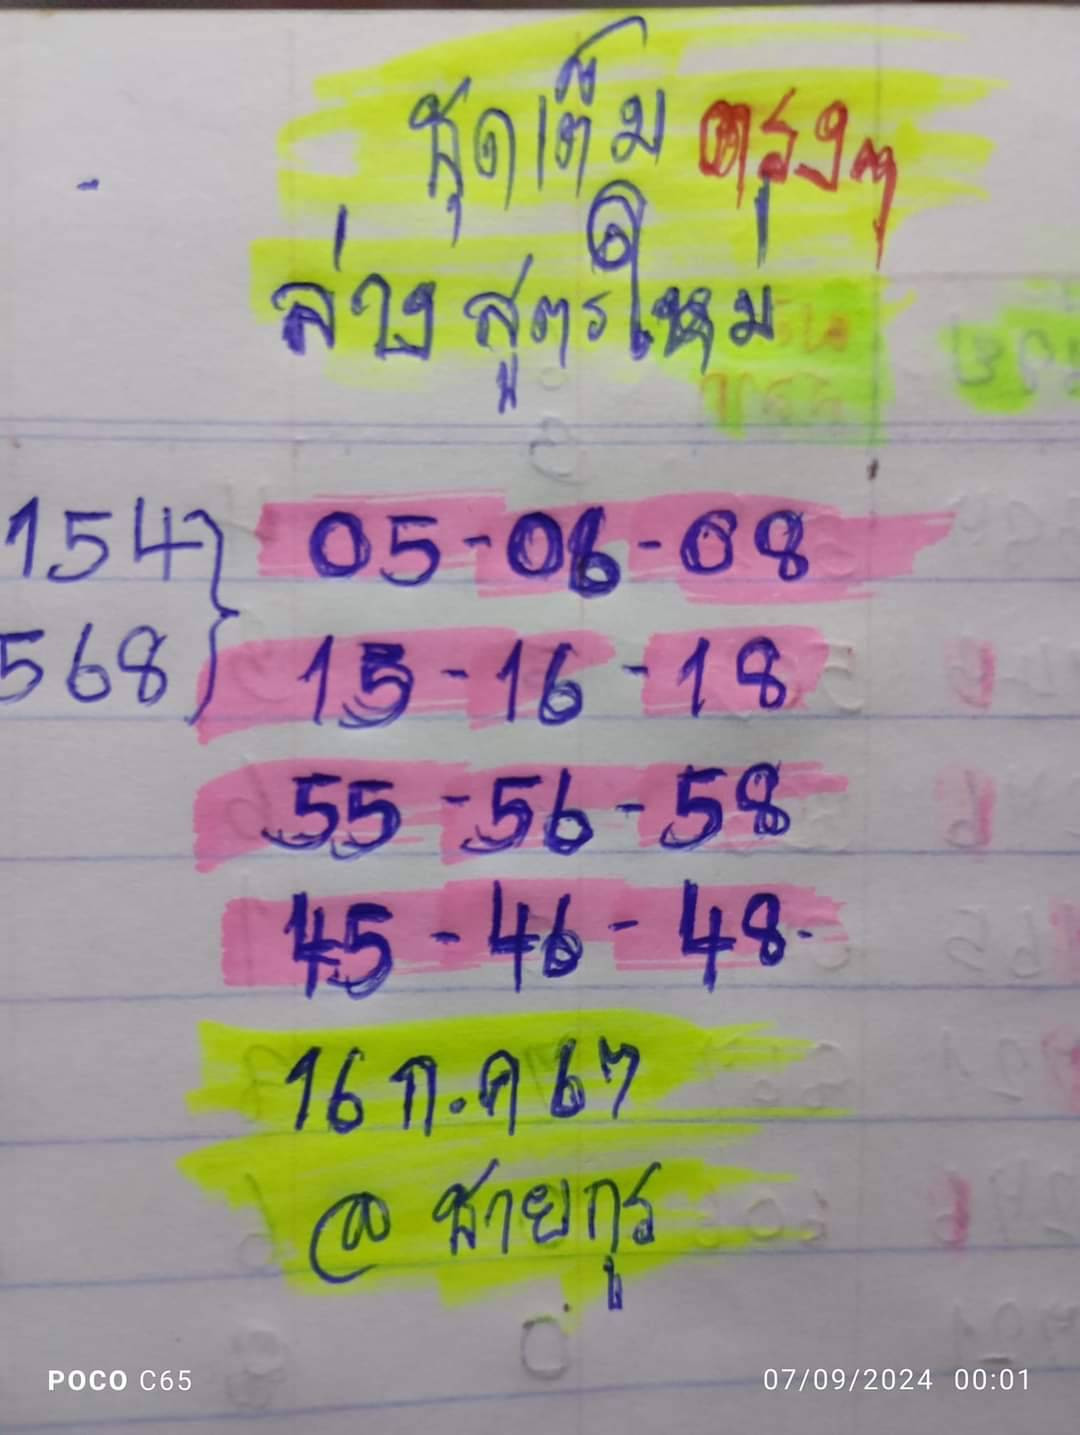 ชุดเต็ม ตรงๆ
ล่าง สูตรใหม่
154 05-06-08
568 15-16-18
55-56-58
45-46-48.
16 ก.ค 67
@ ชายกุร
POCO C65 07/09/2024 00:01